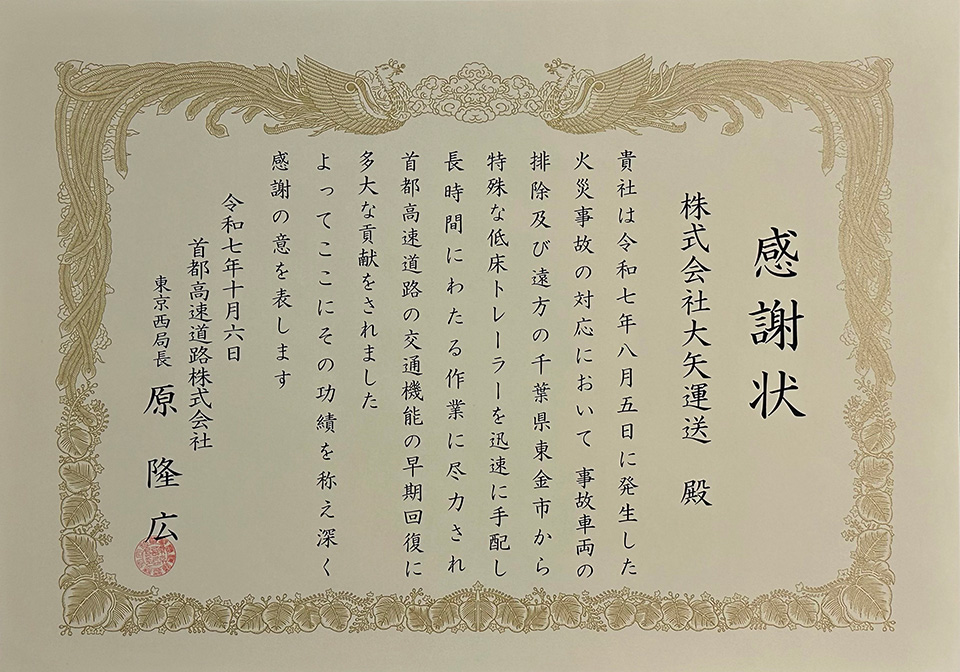 感謝状
株式会社大矢運送 殿
貴社は令和七年八月五日に発生した
火災事故の対応において 事故車両の
排除及び遠方の千葉県東金市から
特殊な低床トレーラーを迅速に手配し
長時間にわたる作業に尽力され
首都高速道路の交通機能の早期回復に
多大な貢献をされました
よってここにその功績を称え深く
感謝の意を表します
令和七年十月六日
首都高速道路株式会社
東京西局長 原 隆広